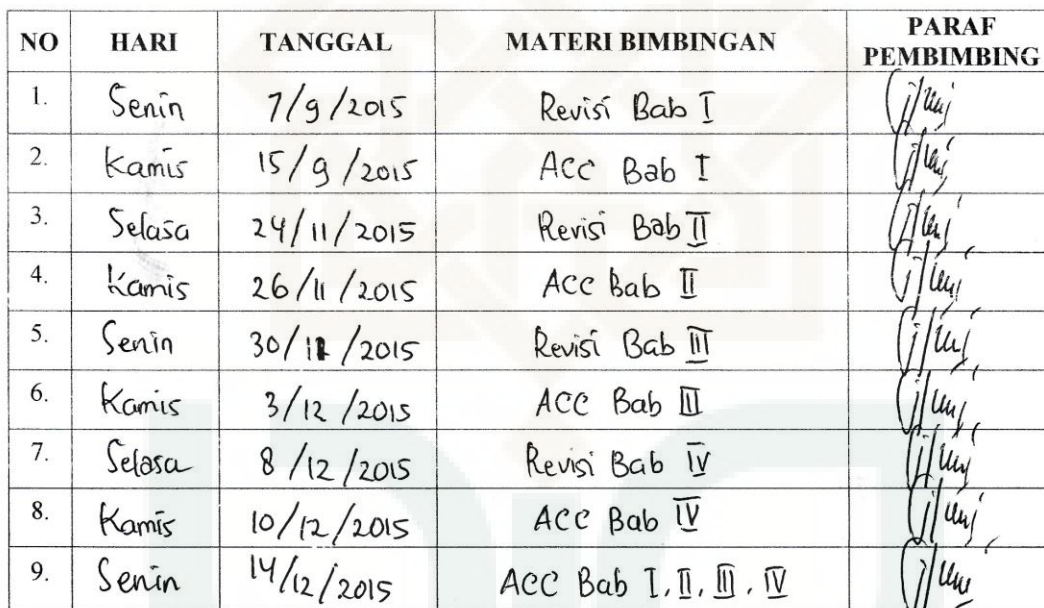 NO HARI TANGGAL MATERI BIMBINGAN PARAF PEMBIMBING
1. Senin 7/9/2015 Revisi Bab I
2. Kamis 15/9/2015 ACC Bab I
3. Selasa 24/11/2015 Revisi Bab II
4. Kamis 26/11/2015 ACC Bab II
5. Senin 30/11/2015 Revisi Bab III
6. Kamis 3/12/2015 ACC Bab III
7. Selasa 8/12/2015 Revisi Bab IV
8. Kamis 10/12/2015 ACC Bab IV
9. Senin 14/12/2015 ACC Bab I, II, III, IV